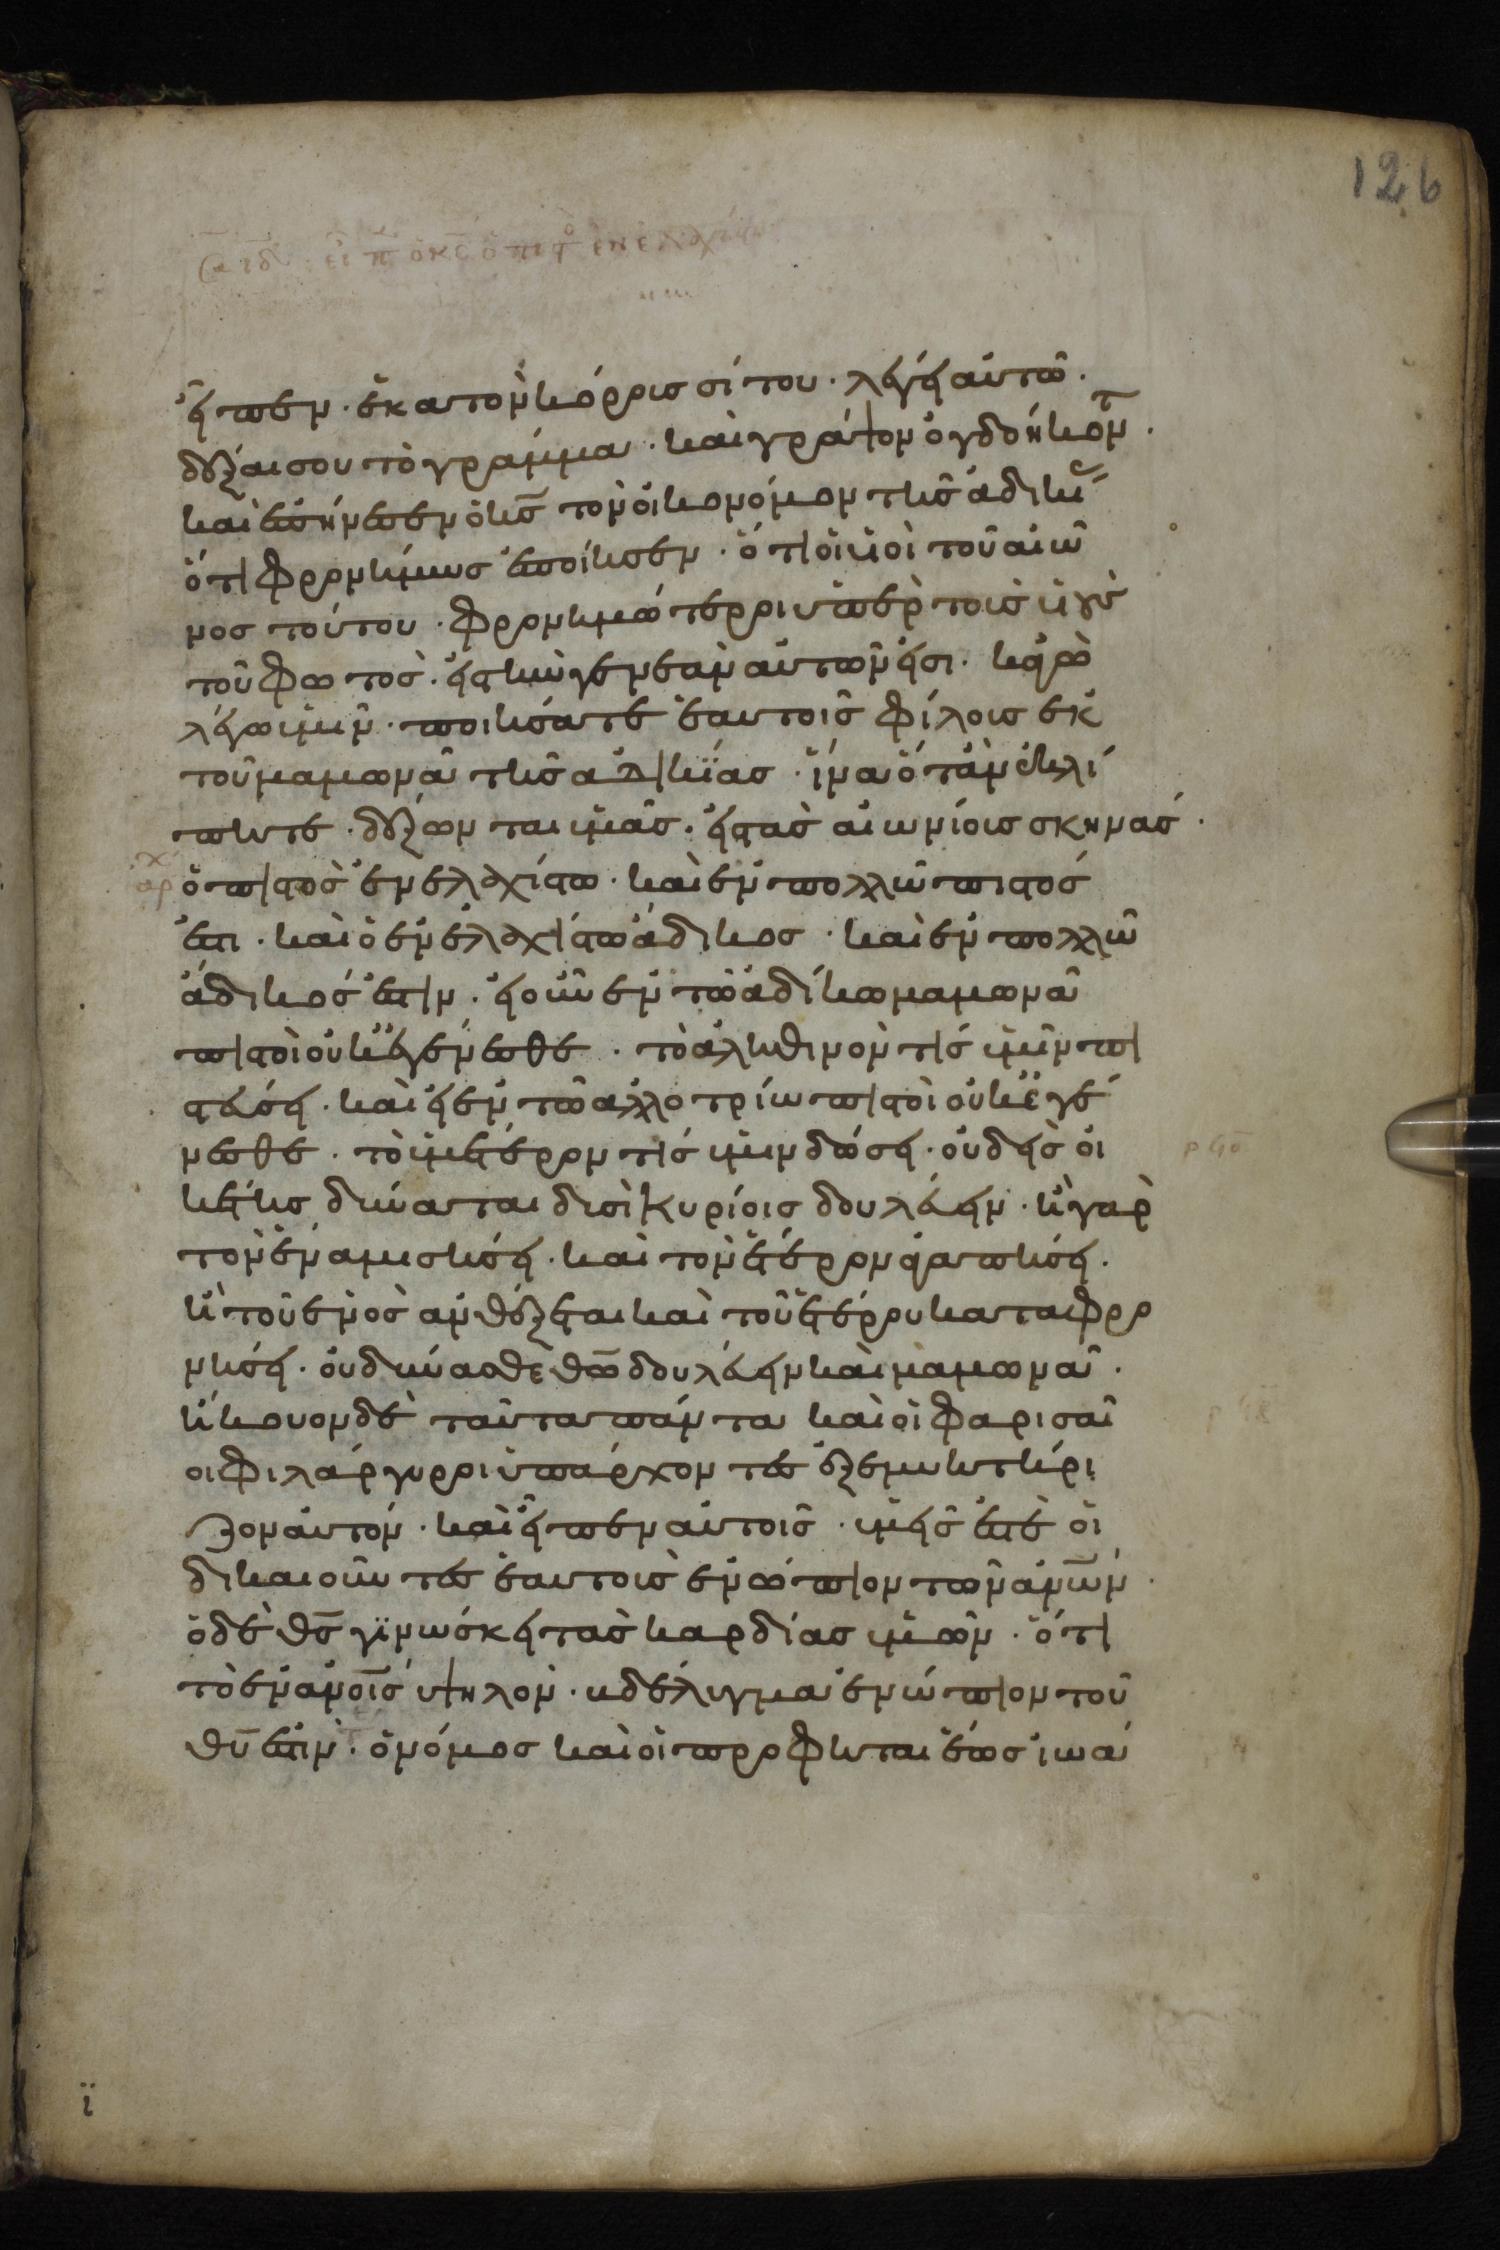 126
εἶπεν · ἑκατὸν κόρρις σίτου · λέγει αὐτῶ ·
δέξαι σου τὸ γράμμα · καὶ γράψον ὀγδοήκοντ ·
καὶ ἐπήνεσεν ὁ κς̅ τὸν οἰκονόμον τῆς ἀδικί
ὅτι φρονήμως ἐποίησεν · ὅτι οἱ ὑοὶ τοῦ αἰῶ
νος τούτου · φρονημώτερροι ὑπὲρ τοὺς ὑιοὺς
τοῦ φωτὸς · εἰς τὴν γενεὰν αὐτῶν εἰσι · καγὼ
λέγω ὑμῖν · ποιήσατε ἑαυτοῖς φίλοις ἐκ
τοῦ μαμωνᾶ τῆς ἀδικΐας · ἵνα ὅταν ἐκλί
πητε · δέξωνται ὑμᾶς · εἰς τὰς αἰωνίοις σκηνάς ·
ὁ πιστὸς ἐν ἐλαχίστω · καὶ ἐν πολλῶ πιστός
ἐστι · καὶ ὁ ἐν ἐλαχίστω ἄδικος · καὶ ἐν πολλῶ
ἄδικός ἐστιν · εἰ οὖν ἐν τῶ ἀδίκω μαμωνᾶ
πιστοὶ οὐκ ἐγένεσθε · τὸ ἀληθινὸν τίς ὑμῖν πι
στεύσει · καὶ εἰ ἐν τῶ ἀλλοτρίω πιστοὶ οὐκ ἐγέ
νεσθε · τὸ ὑμέτερον τίς ὑμιν δώσει · οὐδεὶς οἰ
κέτης δύναται δυσὶ κυρίοις δουλεύειν · ἢ γὰρ
τὸν ἕνα μισήσει · καὶ τὸν ἕτερρον ἀγαπήσει ·
ἢ τοῦ ἑνὸς ἀνθέξεται καὶ τοῦ ἑτέρρου καταφρο
νήσει · οὐ δύνασθε θω̅ δουλεύειν καὶ μαμωνᾶ ·
ἤκουον δὲ ταῦτα πάντα καὶ οἱ φαρισαῖ
οι φιλάργυρροι ὑπάρχοντες ἐξεμυκτήρι
ζον αὐτόν · καὶ εἶπεν αὐτοῖς · ὑμεῖς ἐστὲ οἱ
δικαιοῦντες ἑαυτοὺς ἐνώπιον τῶν ἀνω̅ν ·
ὁ δὲ θς̅ γϊνώσκει τὰς καρδίας ὑμῶν · ὅτι
τὸ ἐν ἀνοι̅ς ὑψηλὸν · βδέλυγμα ἐνώπιον τοῦ
θυ̅ ἐστιν · ὁ νόμος καὶ οἱ προφῆται ἕως ἰωά
ϊ